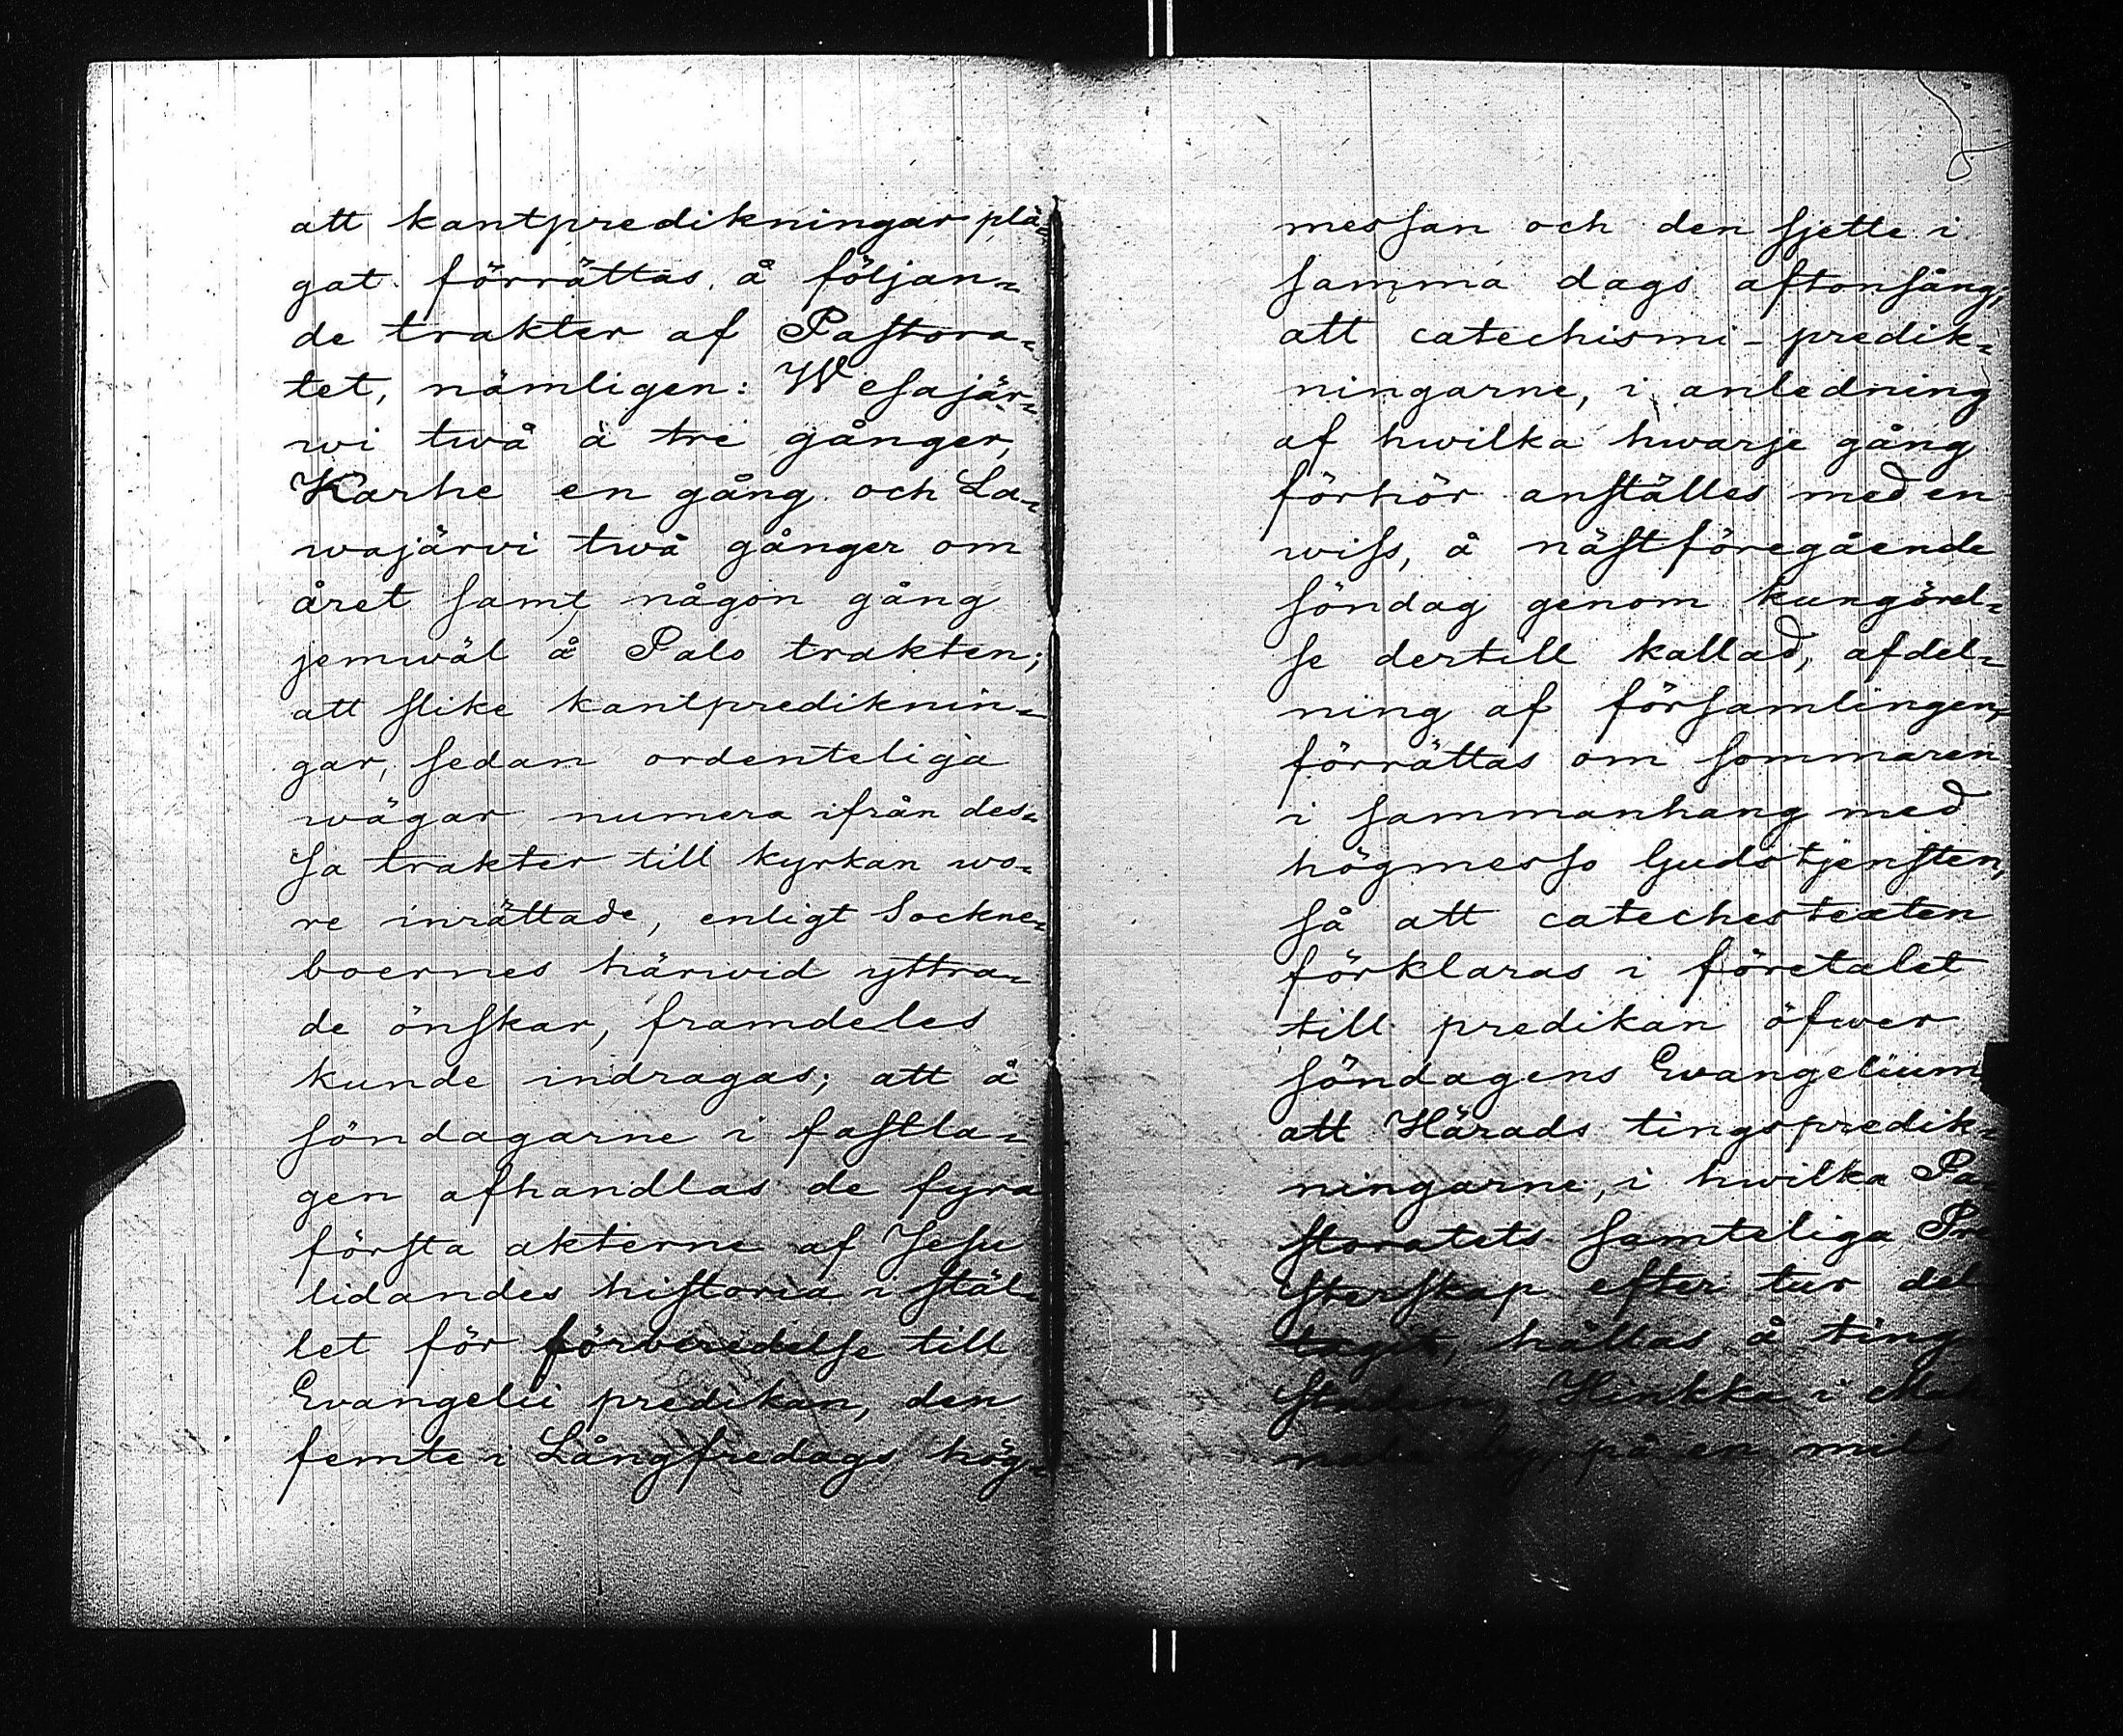 att kantpredikningar plä-
gat förrättas å följan-
de trakter af Pastora-
tet, nämligen: Wesajär-
wi twå à tre gånger,
Karhe en gång och La-
wajärvi twå gånger om
året samt någon gång
jemwäl å Palo trakten;
att slike kantprediknin-
gar, sedan ordenteliga
wägar numera ifrån des-
sa trakter till kyrkan wo-
re inrättade, enligt Sockne-
boernes härwid yttra-
de önskar, framdeles
kunde indragas; att å
söndagarne i fastla-
gen afhandlas de fyra
första akterne af Jesu
lidandes historia i stäl-
let för förberedelse till
Evangelii predikan, den
femte i Långfredags hög-
messan och den sjette i
samma dags aftonsång;
att catechismi-predik-
ningarne, i anledning
af hwilka hwarje gång
förhör anställes med en
wiss, å nästföregående
söndag genom kungörel-
se dertill kallad, afdel-
ning af församlingen,
förrättas om sommaren
i sammanhang med
högmesso Gudstjensten,
så att catechestexten
förklaras i företalet
till predikan öfwer
söndagens Evangelium
att Härads tingspredik-
ningarne, i hwilka Pa-
storatets samteliga Pre
sterskap efter tur del
taget, hållas å ting
staden, Hinkka i
by, på en mils